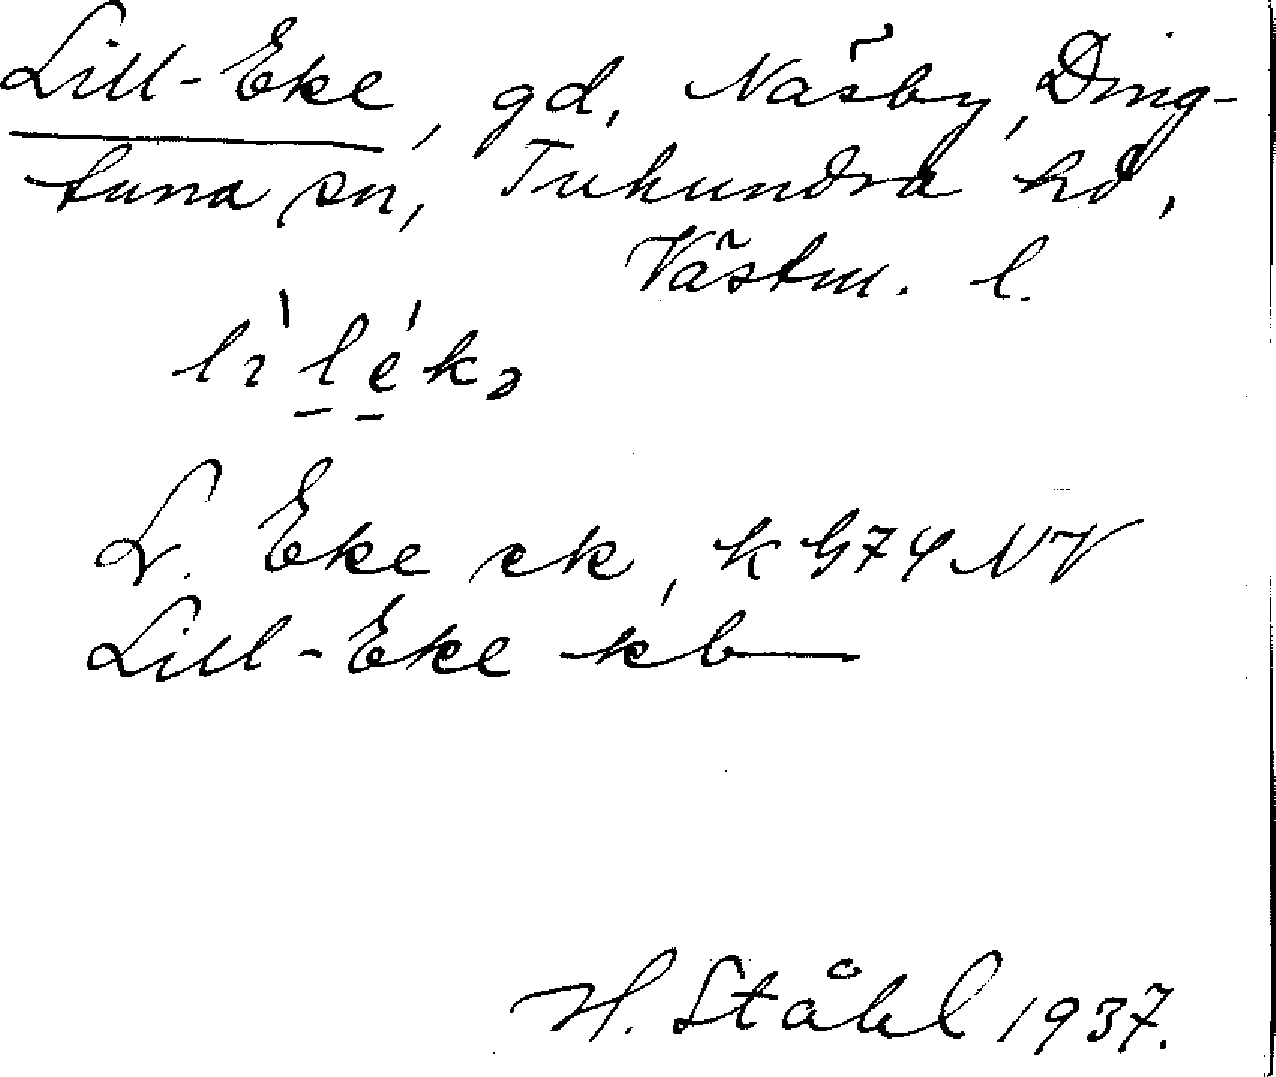 Lill-Eke, gd, Näsby, Ding-
tuna sn, Tuhundra hd,
Västm. l.
lı̀lékə
L. Eke ek, k G74 NV
Lill-Eke kb
H. Ståhl 1937.